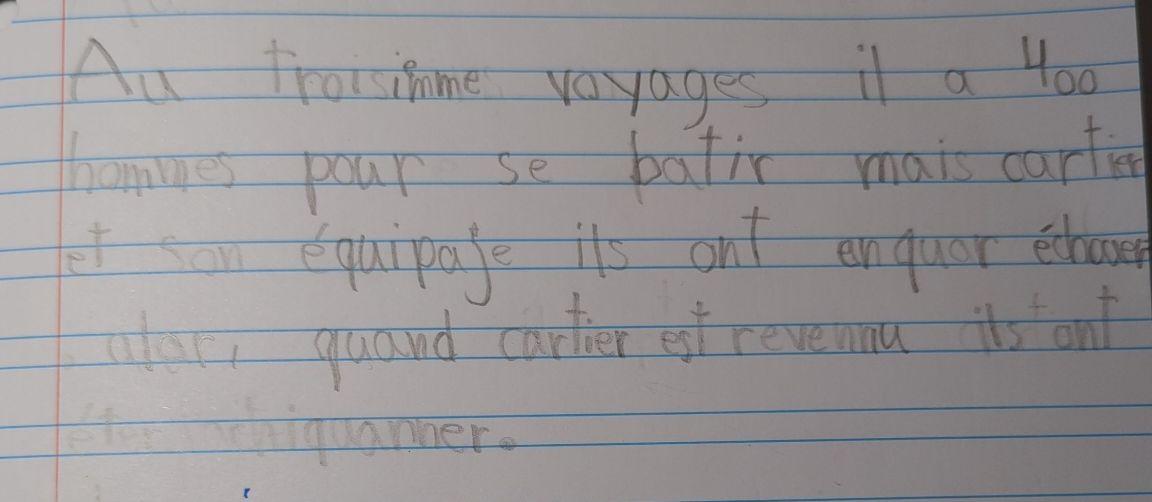 Au troisimme voyages il a 400
hommes pour se batir mais cartier
et son équipaje ils ont enquor échouer
alor, quand cartier est revennu ils ont
éter chiquanner.